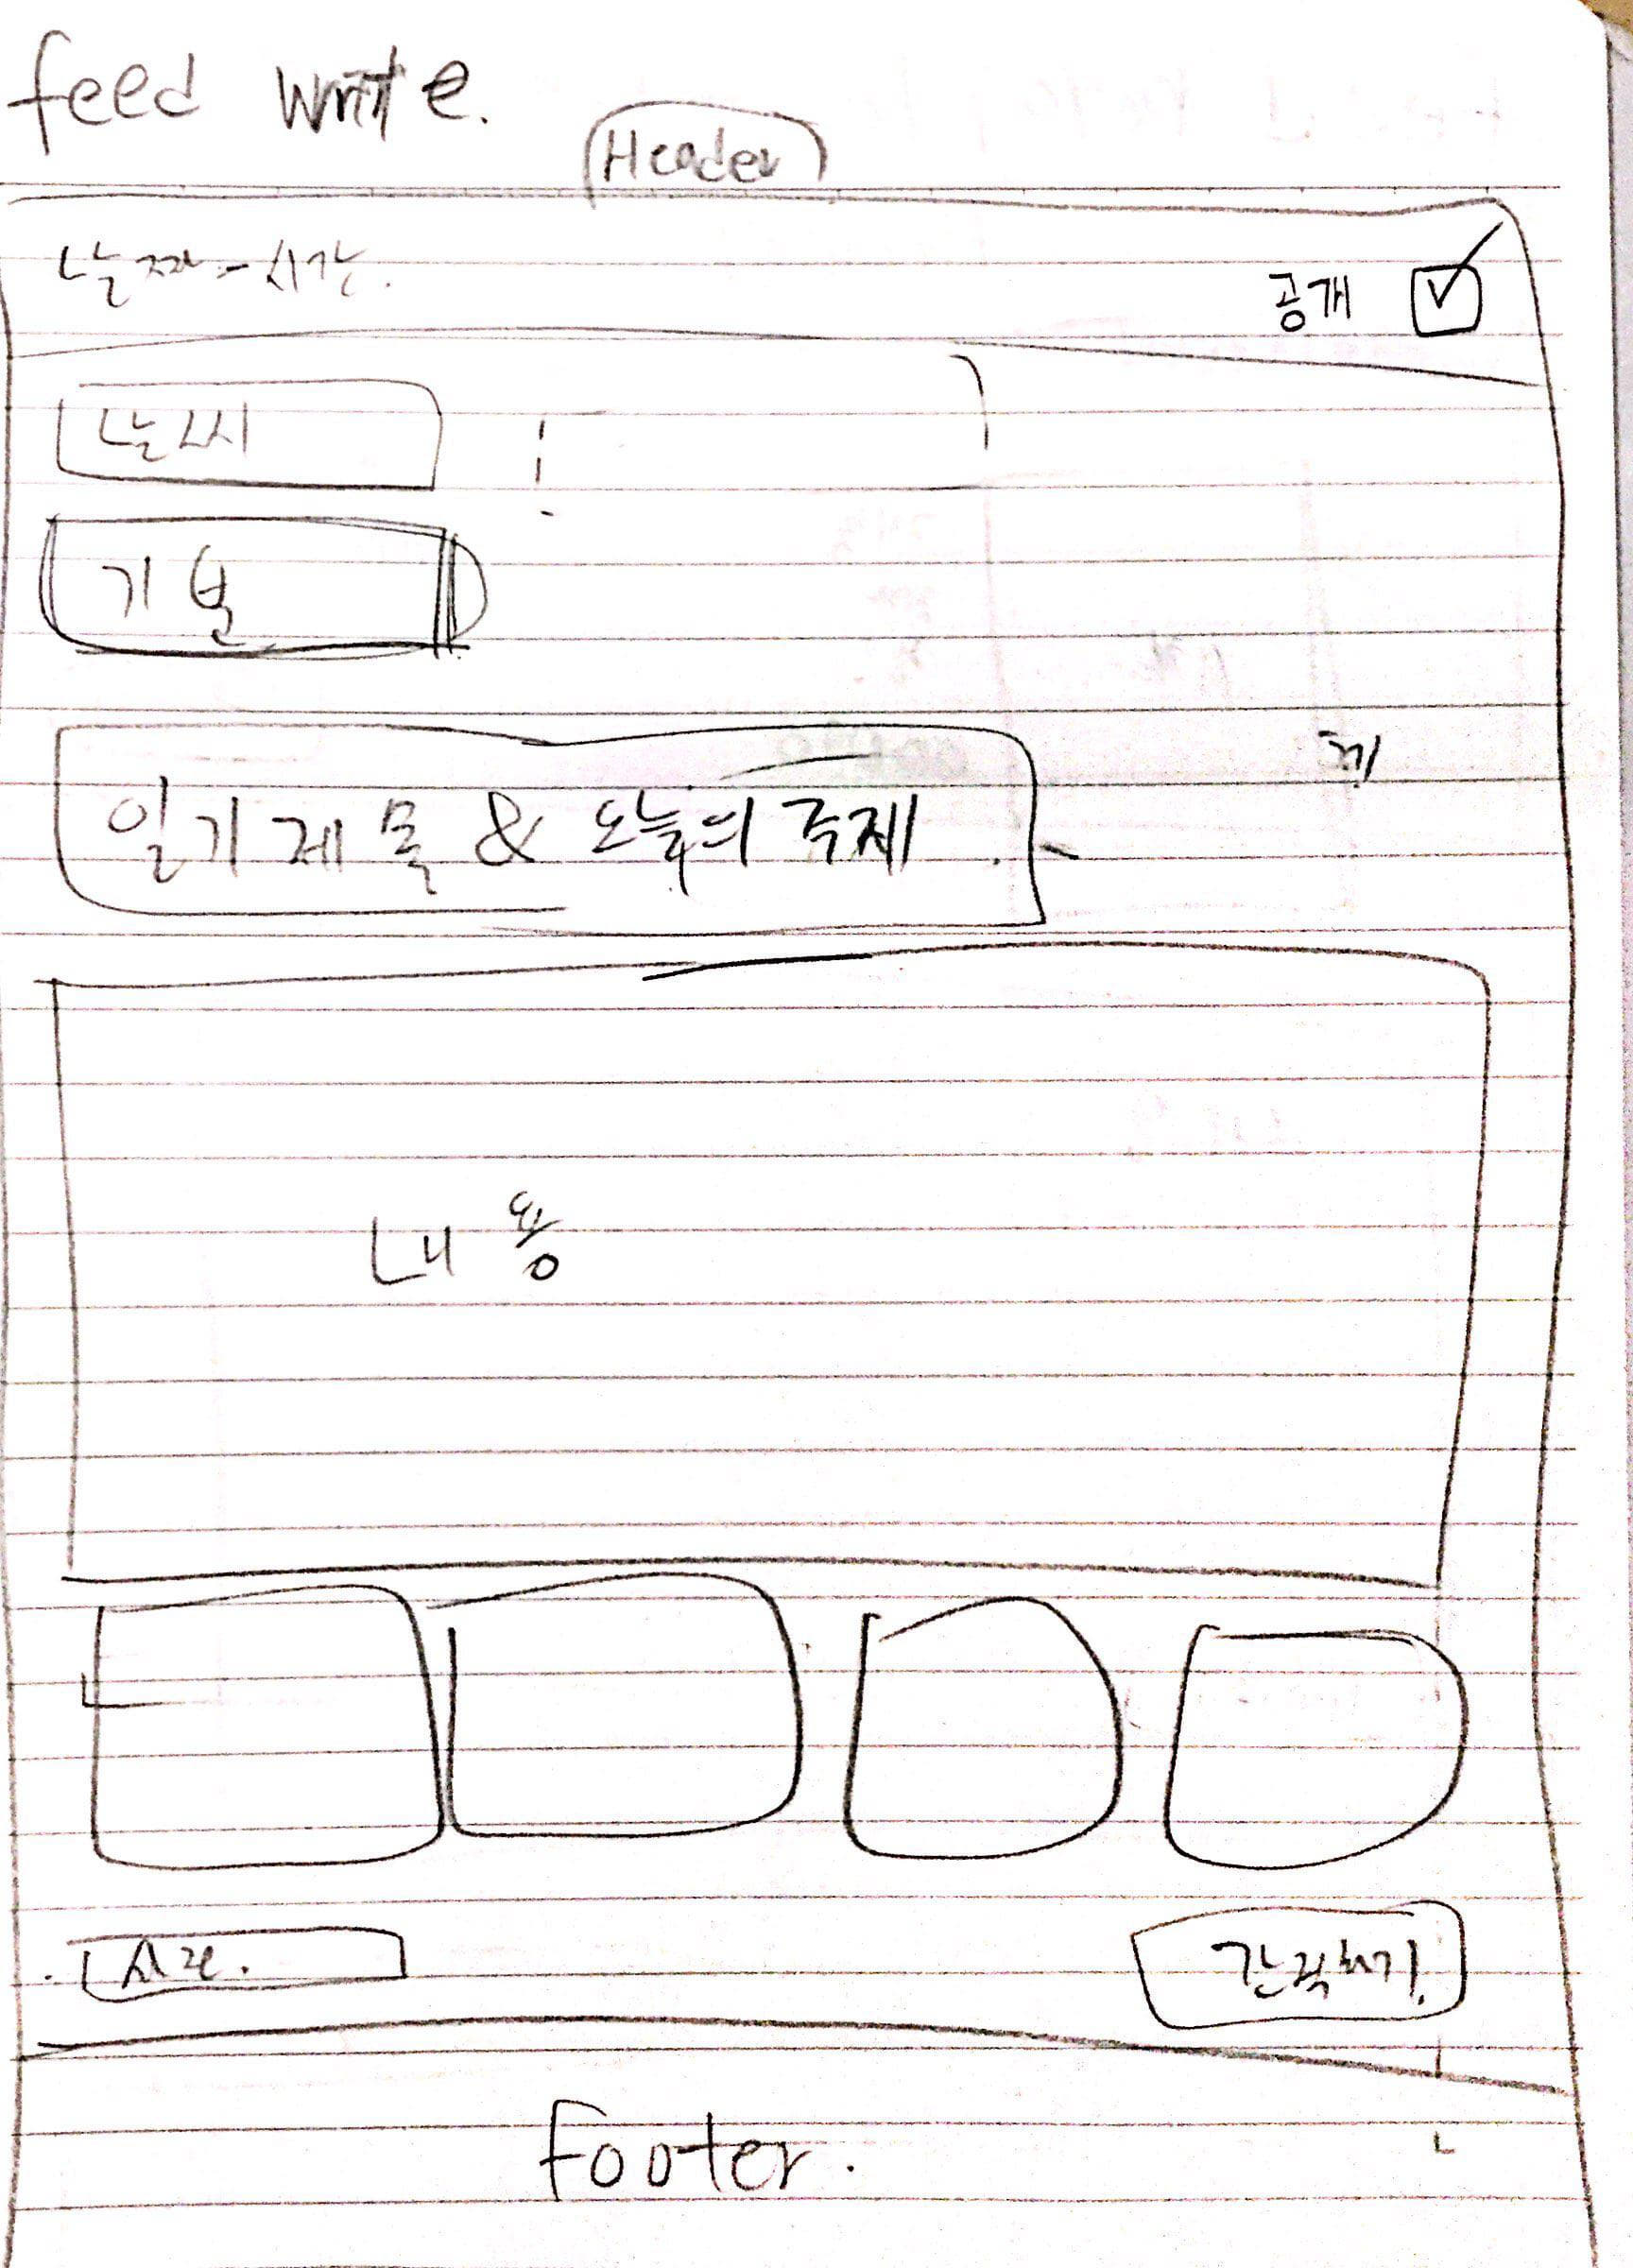 feed write.
Header
날짜-시간.
공개
날씨
기분
제
일기 제목 & 오늘의 주제
내용
Footer.